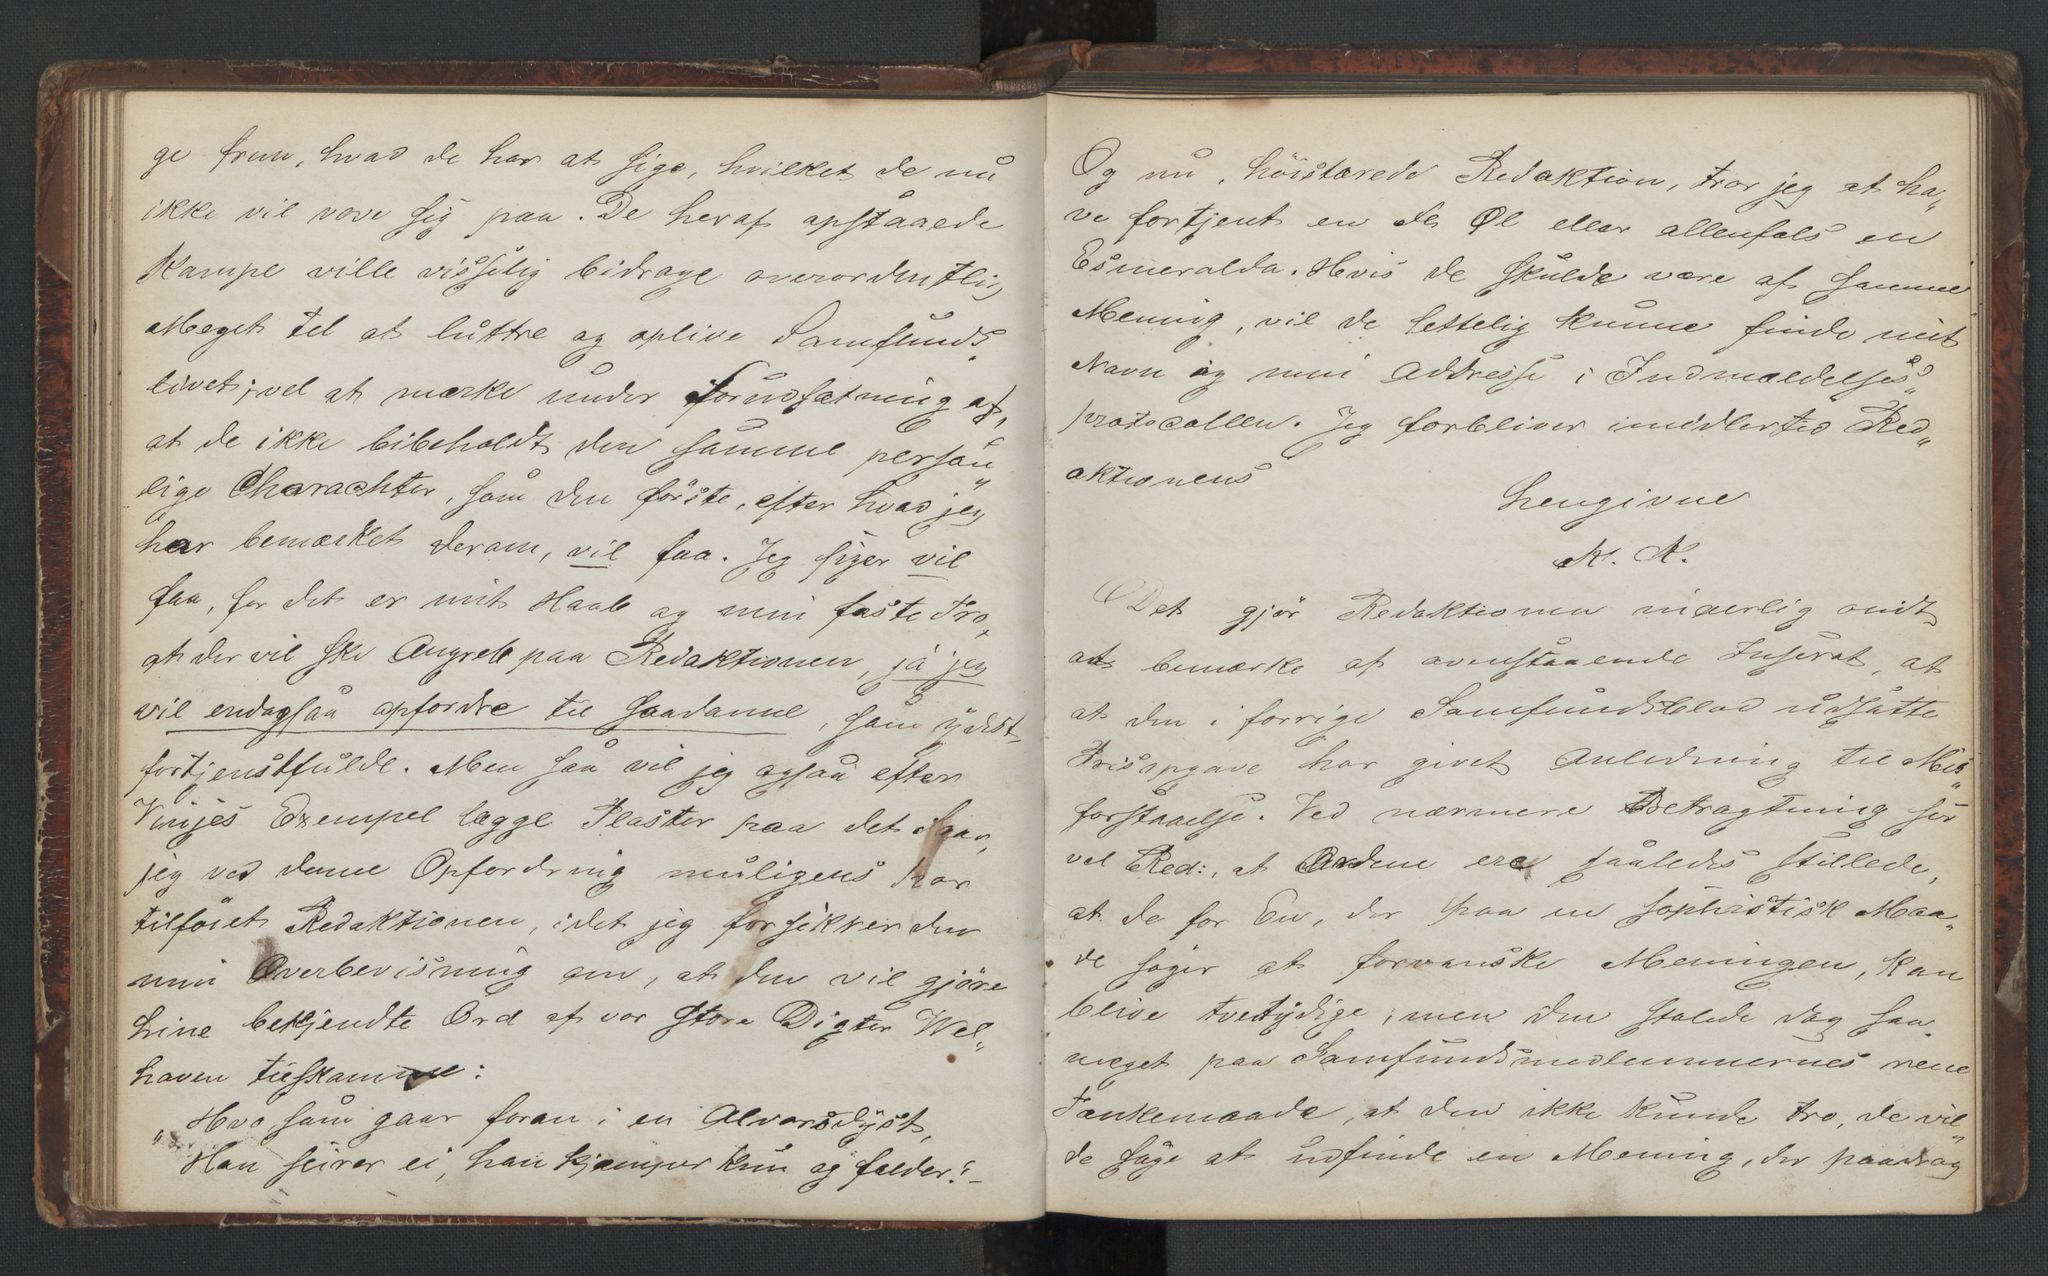 ge frem, hvad de har at sige, hvilket de nu
ikke vil vove sig paa. De heraf opstaaede
Kampe ville visselig bidrage overordentlig
Meget til at luttre og oplive Samfunds-
livet; vel at mærke under Forudsætning af,
at de ikke bibeholdt den samme person„
lige Charachter, som den første, efter hvad jeg
har bemærket derom, vil faa. Jeg siger vil
faa, for det er mit Haab og min faste Tro,
at der vil ske Angreb paa Redaktionen, ja jeg
vil endogsaa opfordre til saadanne, som yderst
fortjenstfulde. Men saa vil jeg ogsaa efter
Vinjes Exempel lægge Plaster paa det Saar,
jeg ved denne Opfordring muligens har
tilføiet Redaktionen, idet jeg forsikrer den
min Overbevisning om, at den vil gjøre
hine bekjendte Ord af vor store Digter Wel„
haven tilskamme:
„Hvo som gaar foran i en Alvorsdyst,
Han seirer ei, han kjæmper kun og falder.“
Og nu, høistærede Redaktion, tror jeg at ha„
ve fortjent en Øl eller allenfals en
Esmeralda. Hvis de skulde være af samme
Mening, vil de lettelig kunne finde mit
Navn og min Addresse i Indmældelses„
protocollen. Jeg forbliver imidlertid Red„
aktionens
hengivne
N. N.
Det gjør Redaktionen inderlig ondt
at bemærke af ovenstaaende Inserat, at
at den i forrige Samfundsblad udsatte
Prisopgave har givet Anledning til Mis„
forstaaelse. Ved nærmere Betragtning ser
vel Red:, at Ordene ere saaledes stillede,
at de for En, der paa en sophistisk Maa„
de søger at forvanske Meningen, kan
blive tvetydige, men den stolede dog saa
meget paa Samfundsmedlemmernes rene
Tankemaade, at den ikke kunde tro, de vil„
de søge at udfinde en Mening, der paadrog